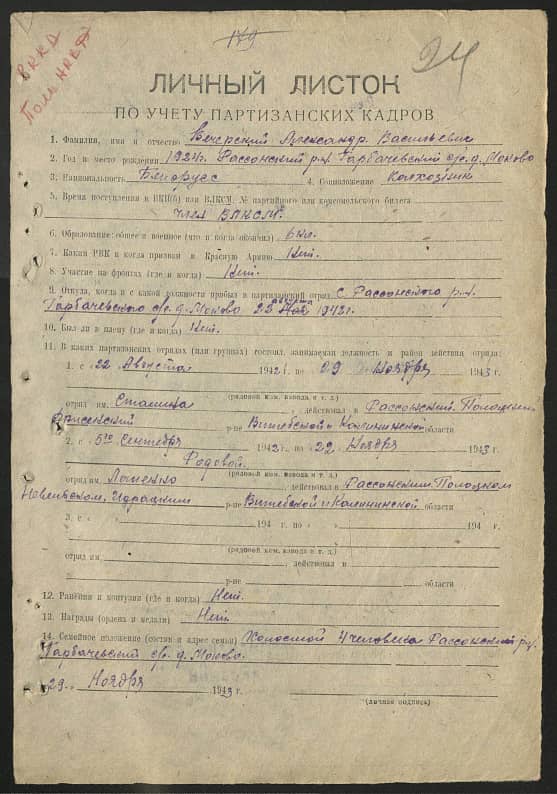 179
24
ВККД
ЛИЧНЫЙ ЛИСТОК
ПО УЧЕТУ ПАРТИЗАНСКИХ КАДРОВ
1. Фамилия, имя и отчество Вечерский Александр Васильевич
2. Год и место рождения 1924г. Рассонский р-н, Гарбачевский с/с. д. Моково
3. Национальность Белорусс 4. Соцположение Колхозник
5. Время поступления в ВКП(б) или ВЛКСМ, № партийного или комсомольского билета
член ВЛКСМ.
6. Образование: общее и военное (что и когда окончил) 6 кл.
7. Каким РВК и когда призван в Красную Армию Нет.
8. Участие на фронтах (где и когда) Нет.
9. Откуда, когда и с какой должности прибыл в партизанский отряд С. Рассонского р-н.
Гарбачевского с/с. д. Моково 22 августа 1942г.
10. Был ли в плену (где и когда) Нет.
11. В каких партизанских отрядах (или группах) состоял, занимаемая должность и район действия отряда:
1. с „22 Августа 1942 г. по „09 Ноября 1943 г.
(рядовой ком. взвода и т. д.)
отряд им. Сталина, действовал в Рассонский. Полоцкий
р-не Витебской и Калининской области
2. с „5го Сентября 1942 г. по „22 Ноября 1943 г.
Рядовой.
(рядовой ком. взвода и т. д.)
отряд им. действовал в Рассонским. Полоцком
Невельском, Идрацким р-не Витебской и Калининской области
3. с „ “ 194 г. по „ “ 194 г.
(рядовой ком. взвода и т. д.)
отряд им. , действовал в
р-не области
12. Ранения и контузии (где и когда) Нет.
13. Награды (ордена и медали) Нет.
14. Семейное положение (состав и адрес семьи) Холостой 4 человека Рассонский р-н.
Гарбачевский с/с. д. Моково.
„29„ Ноября 1943 г.
(личная подпись)